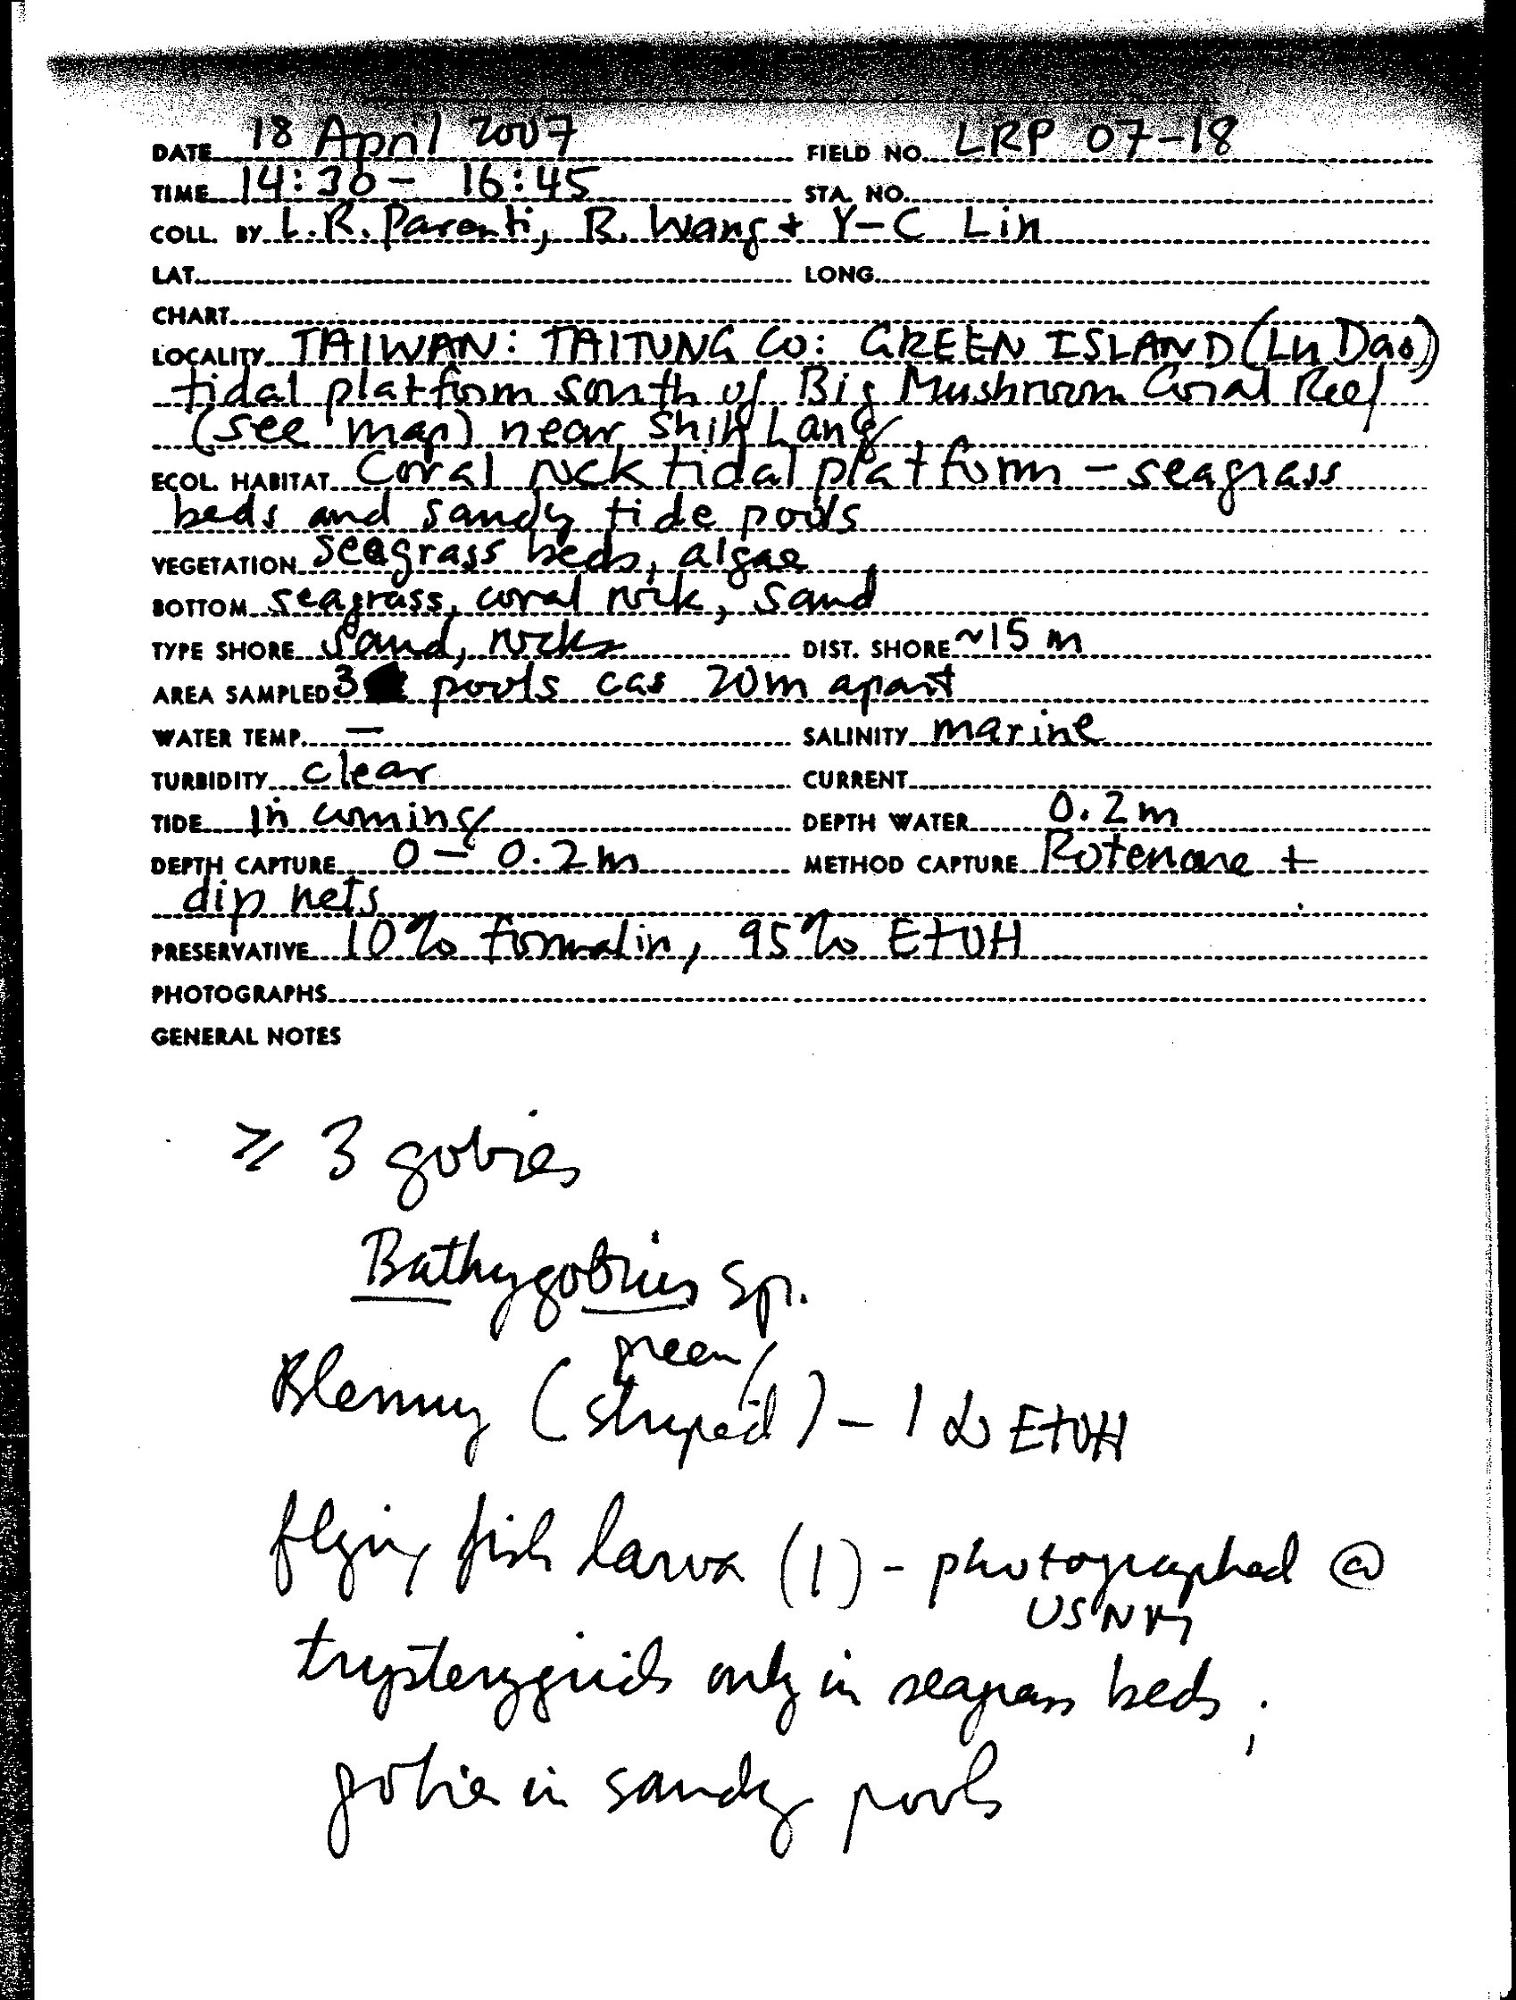 DATE 18 April 2007 FIELD NO. LRP 07-18
TIME 14:30 - 16:45 STA. NO.
COLL. BY L.R. Parenti, R. Wang + Y-C Lin
LAT. LONG.
CHART
LOCALITY TAIWAN: TAITUNG CO: GREEN ISLAND (Lu Dao)
tidal platform south of Big Mushroom Coral Reef
(see map) near Shih Lang
ECOL. HABITAT Coral rock tidal platform - seagrass
beds and sandy tide pools
VEGETATION seagrass beds, algae
BOTTOM seagrass, coral rock, sand
TYPE SHORE Sand, rocks DIST. SHORE ~15 m
AREA SAMPLED 3 pools cas 20m apart
WATER TEMP. — SALINITY marine
TURBIDITY clear CURRENT
TIDE in coming DEPTH WATER 0.2 m
DEPTH CAPTURE 0 - 0.2 m METHOD CAPTURE Rotenone +
dip nets
PRESERVATIVE 10% formalin, 95% EtOH
PHOTOGRAPHS
GENERAL NOTES
≥ 3 gobies
Bathygobius sp.
green/
Blenny (striped) - 1 EtOH
flying fish larva (1) - photographed @
USNM
trypterygiids only in seagrass beds;
gobies in sandy pools